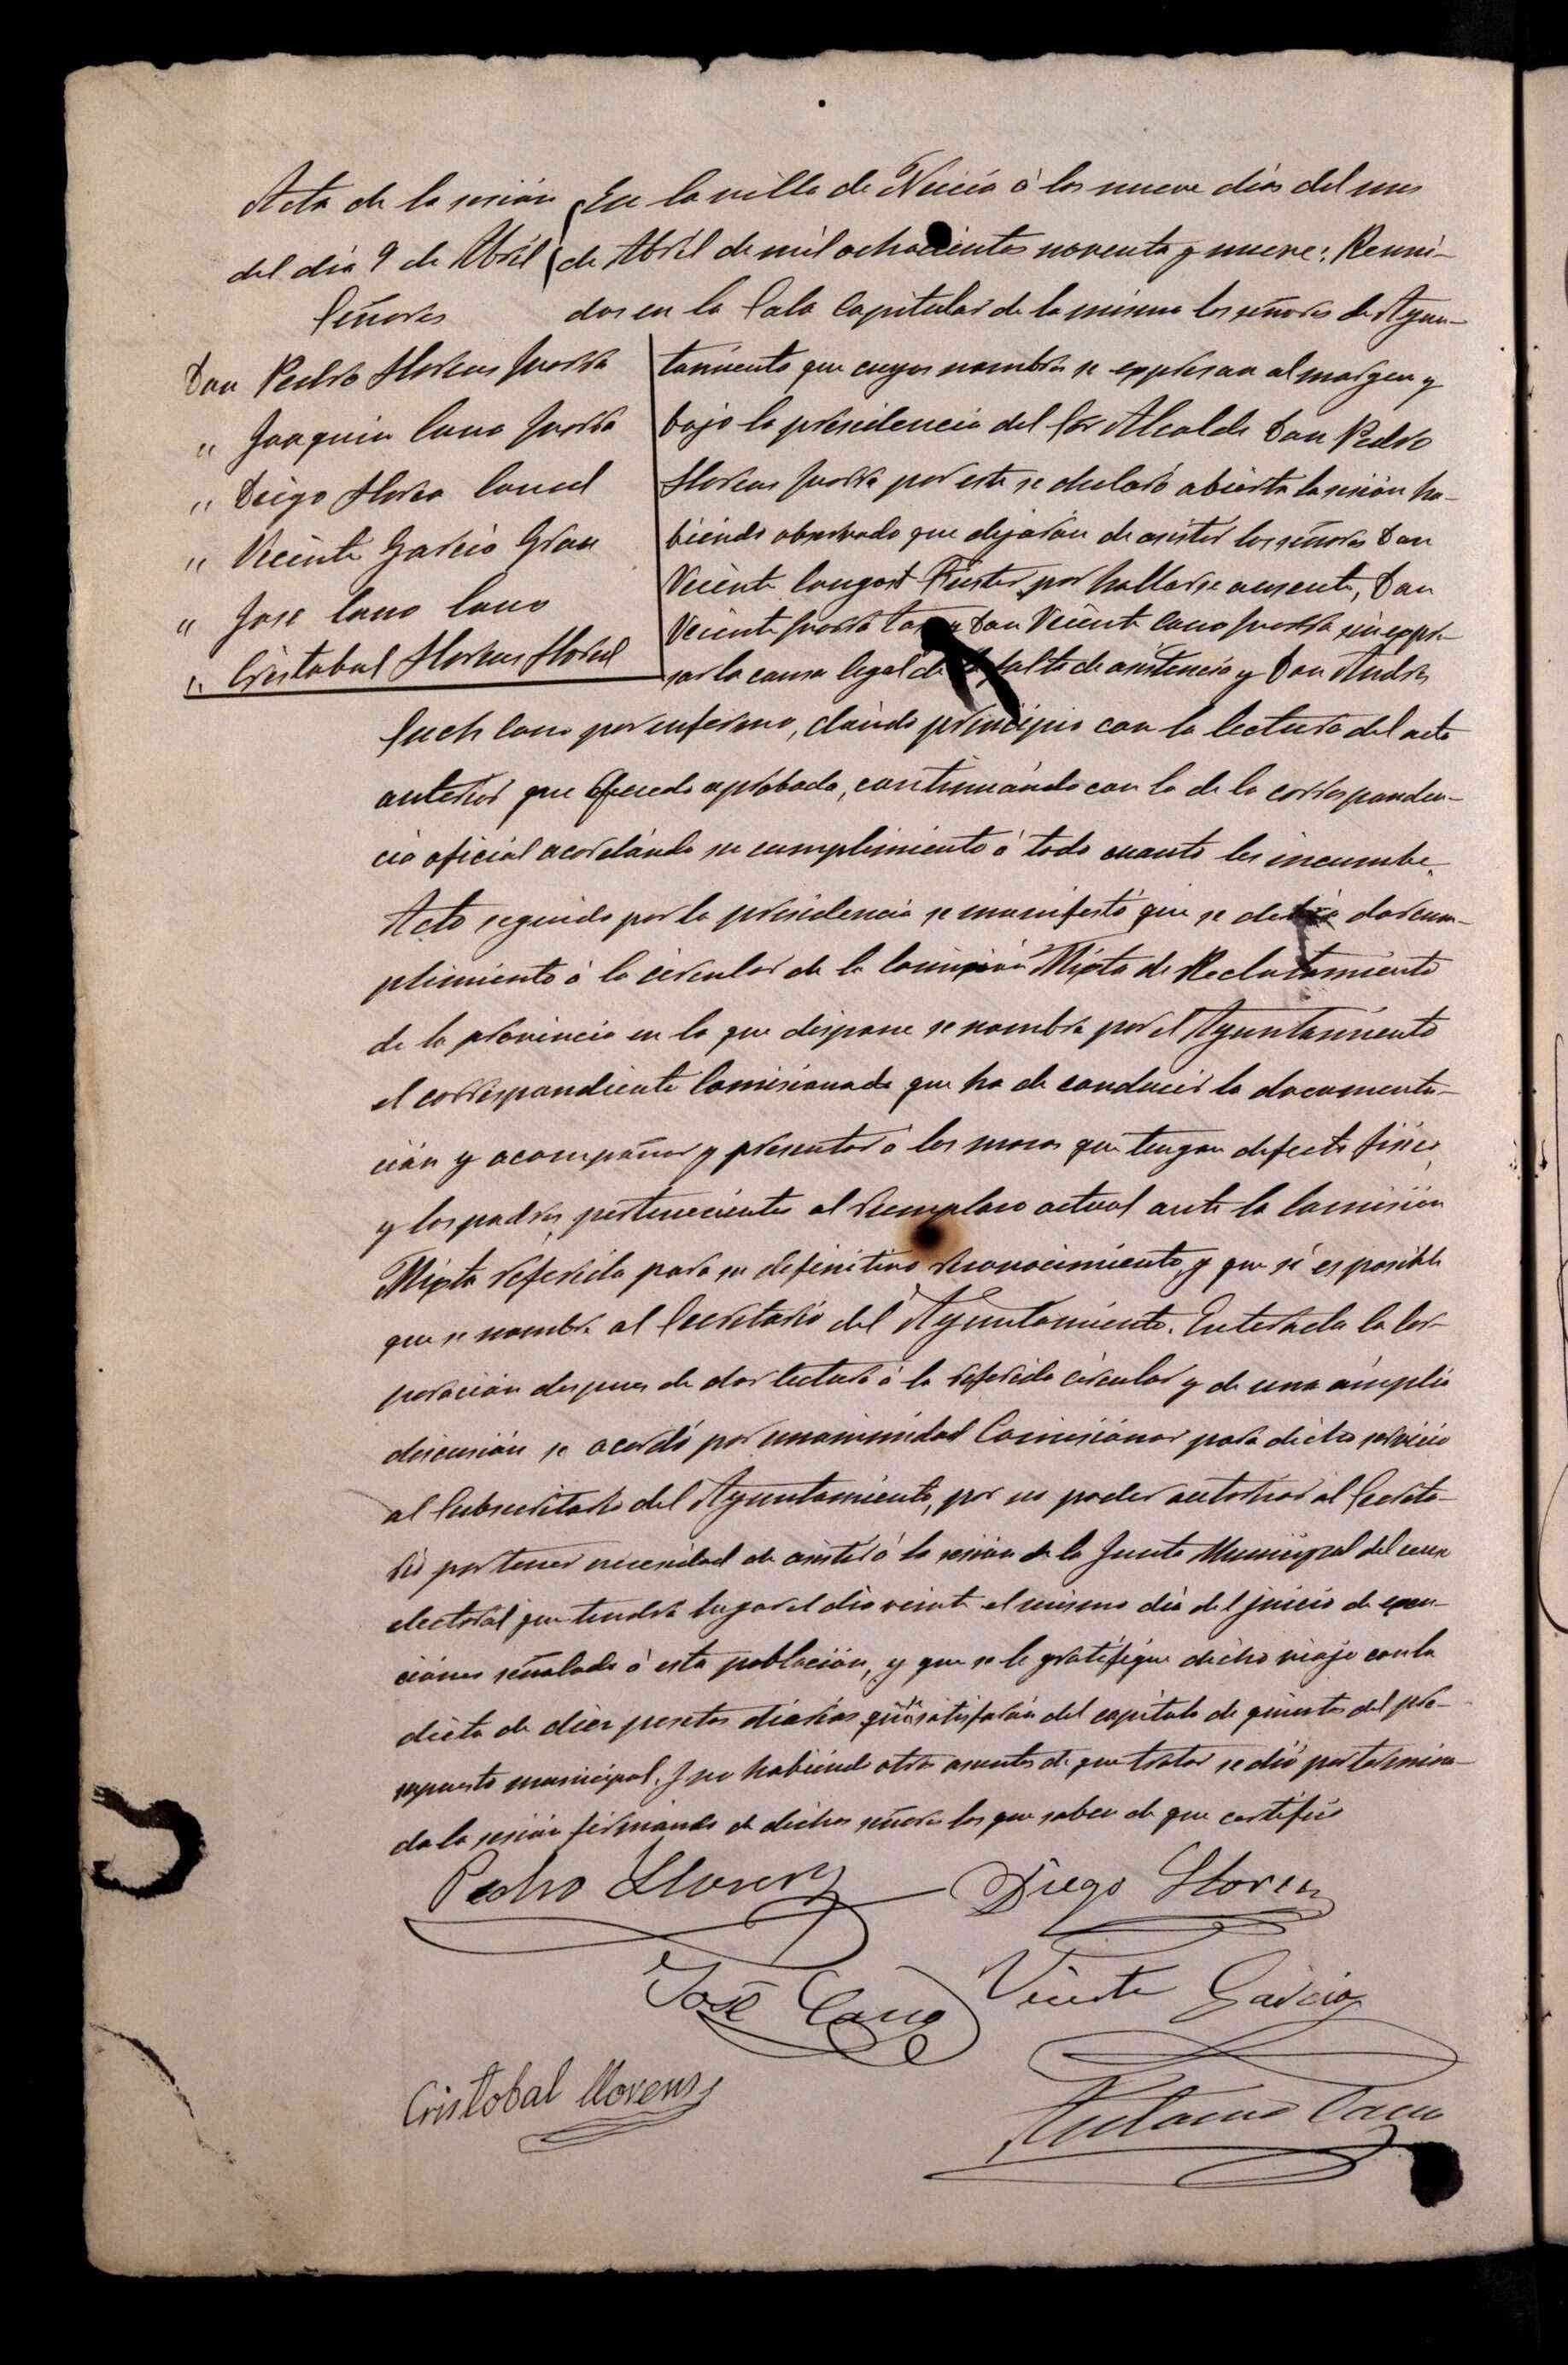 Acta de la sesión
del día 9 de Abril
Señores
Don Pedro Llorens Juorra
" Joaquin Cano Juorra
" Diego Llorca
" Vicente Garcia Grau
" Jose Cano Cano
" Cristobal Llorens Lloret
En la villa de Nucia á los nueve dias del mes
de Abril de mil ochocientos noventa y nueve: Reuni-
dos en la Sala Capitular de la misma los señores de Ayun-
tamiento que cuyos nombres se expresan al margen y
bajo la presidencia del Sor Alcalde Don Pedro
Llorens Juorra por este se declaró abierta la sesión ha-
biendo observado que dejarón de asistir los señores Don
Vicente Fuster por hallarse ausente, Don
Vicente Juorra Don Vicente Cano Juorra sin expre-
sar la causa legal de falta de asistencia y Don Andres
Such Cano por enfermo, dando principio con la lectura del acta
anterior que quedo aprobada, continuándo con la de la corresponden-
cia oficial acordándo su cumplimiento á todo cuanto les incumbe.
Acto seguido por la presidencia se manifestó que se debia dar cum-
plimiento á la circular de la Comisión Mixta de Reclutamiento
de la provincia en la que dispone se nombre por el Ayuntamiento
el correspondiente Comisionado que ha de conducir la documenta-
ción y acompañar y presentar á los mosos que tengan defecto fisico
y los padres pertenecientes al reemplaso actual ante la Comisión
Mixta referida para su definitivo reconocimiento y que si es posible
que se nombre al Secretario del Ayuntamiento. Enterada la Cor-
poración despues de dar lectura á la referida circular y de una ámplia
discusión se acordó por unanimidad Comisionar para dicho servicio
al Subsecretario del Ayuntamiento, por no poder autorisar al Secreta-
rio por tener necesidad de asistir á la sesión de la Junta Municipal del censo
electoral que tendra lugar el dia veinte el mismo dia del juicio de exen-
ciones señalado á esta población, y que se le gratifique dicho viaje con la
dieta de diez pesetas diarias que se satisfarán del capitulo de quintas del pre-
supuesto municipal. Y no habiendo otros asuntos de que tratar se dió por termina-
da la sesión firmándo de dichos señores los que saben de que certifico
Pedro Llorens Diego Llorca
José Cano Vicente Garcia
Cristobal Llorens
Antonio Cano